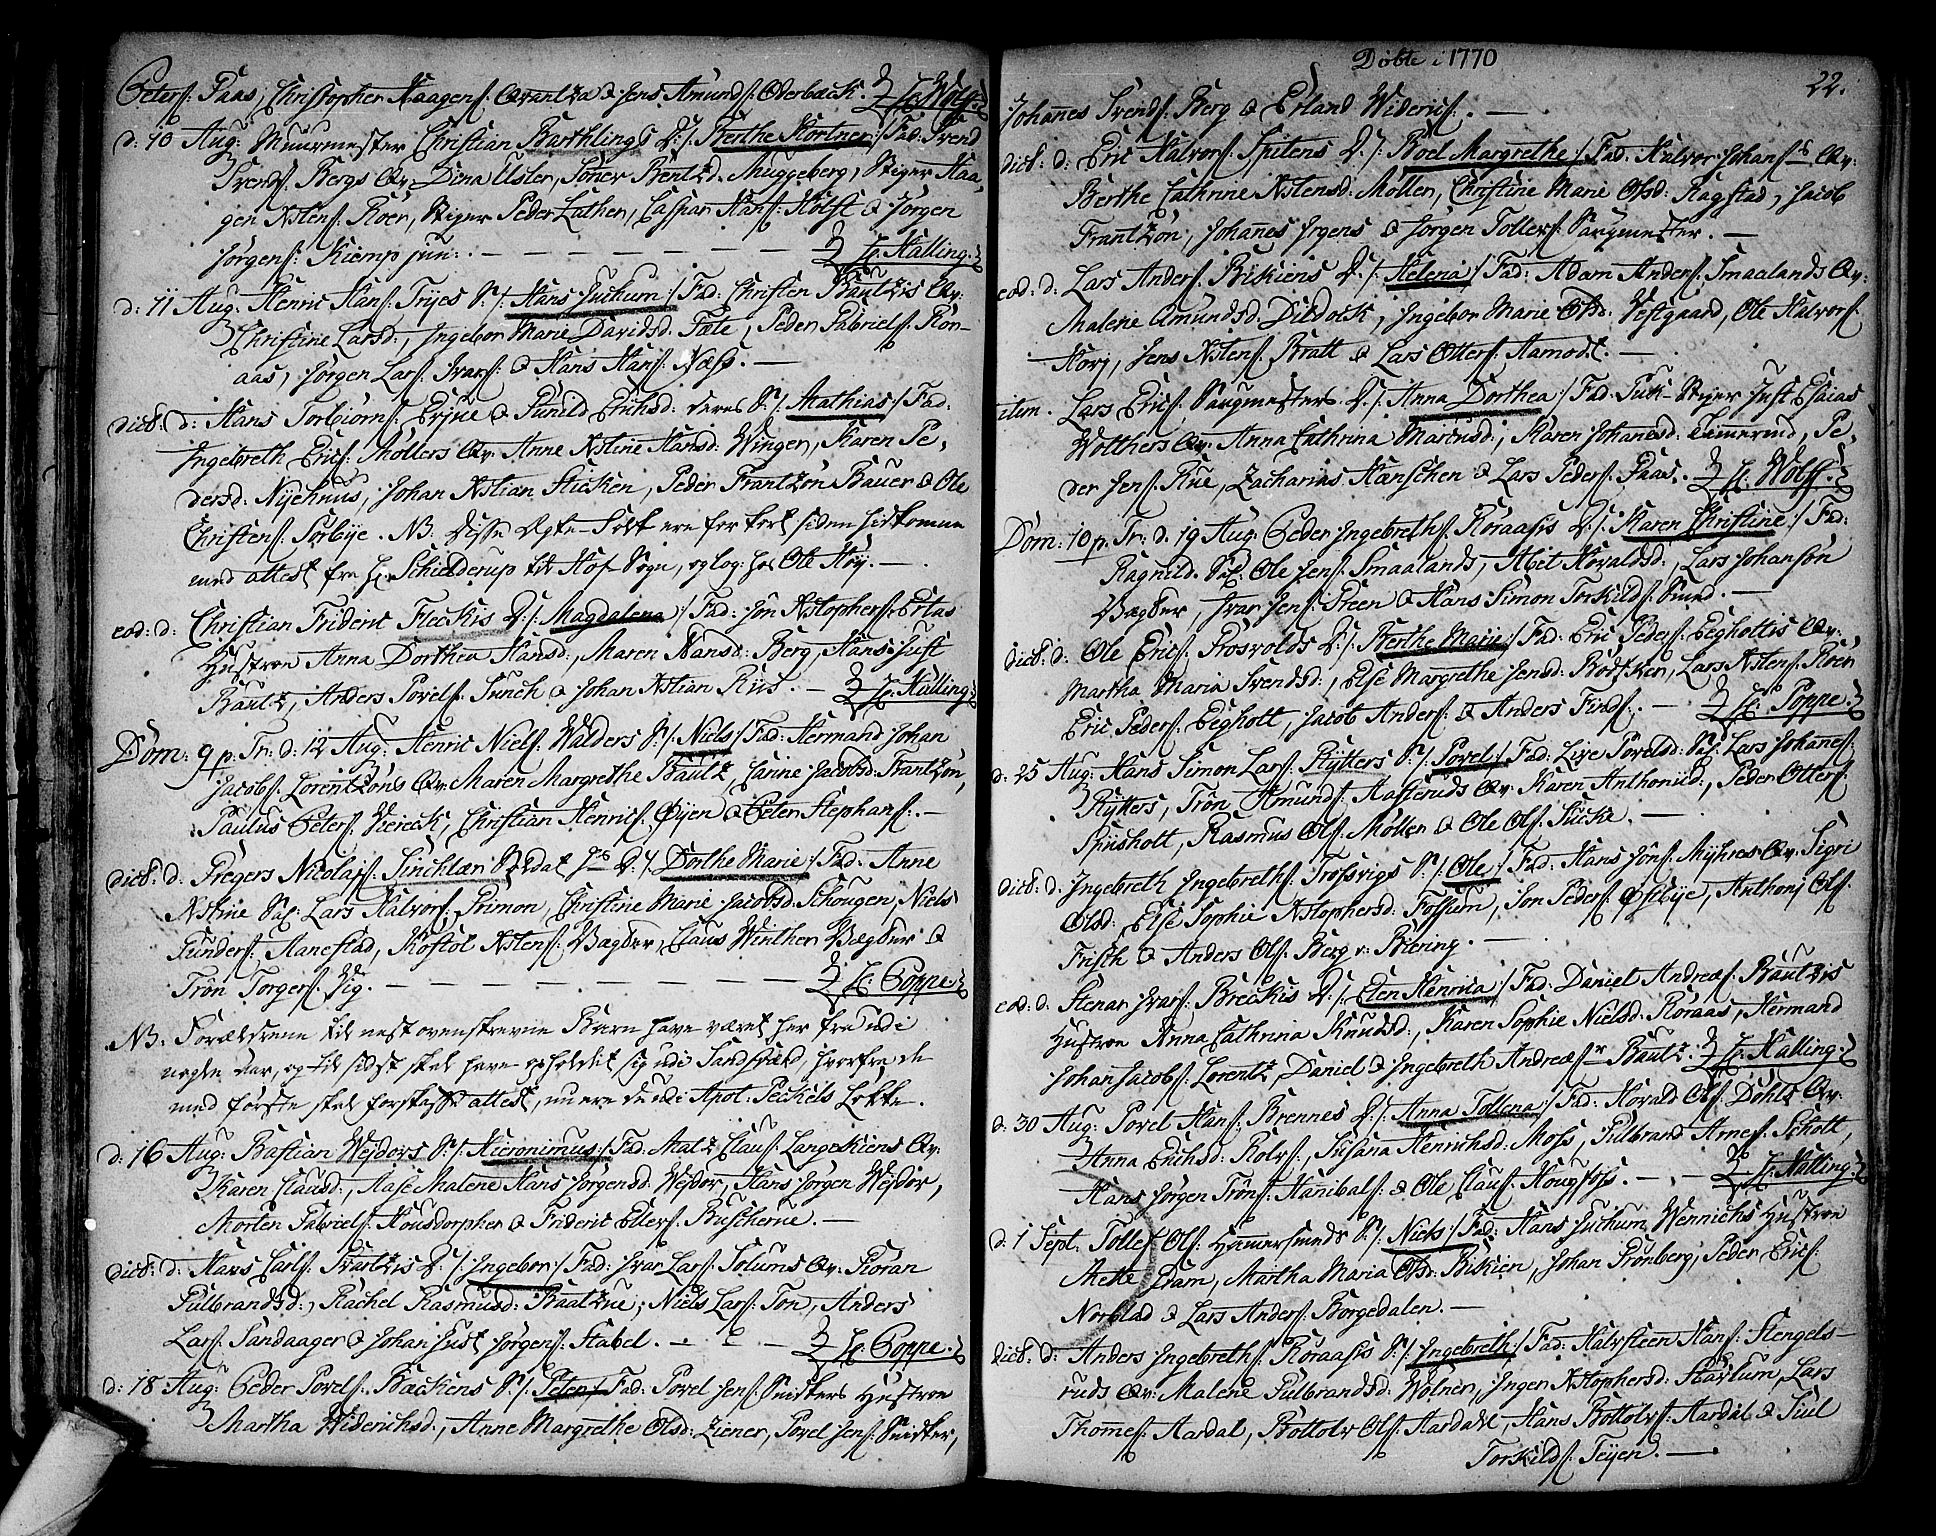 Peters: Paas, Christopher Haagens: Qvantza & Jens Amunds: Oderback. H: Wolf.
d: 10 Aug: Muurmester Christian Barthlings D:/: Berthe Kortner:/ Fad: Svend
Svends: Bergs Qv: Dina Usler, Söner Bentzd: Muggeberg, Stiger Haa,
gen Nilens: Roer, Stiger Peder Lathen, Caspar Hans: Holst & Jörgen
Jörgens: Kiemp jun: H: Halling.
d: 11 Aug: Henric Hans: Tryes S:/: Hans Juchum:/ Fad: Christen Bautzis Qv:
Christine Larsd:, Ingebor Marie Davidsd: Fæte, Peder Gabriels: Ror-
aas, Jörgen Lars: Ivars: & Hans Hans: Næss.
dict: d: Hans Torbiörns: Bryne & Gunild Erichsd: deres S:/: Mathias:/ Fad:
Ingebreth Erics: Möllers Qv: Anne Kstine Hansd: Winger, Karen Pe,
dersd: Nyehuus, Johan Kstian Sticken, Peder Frantzön Bauer & Ole
Christens: Sörbye. NB: Disse Ægte-Folk ere for kort siden hidkomne
med attest fra Hr: Schielderup til Hof-Sogn, og log: hos Ole Höy.
eod: d: Christian Frideric Fleckis D:/: Magdalena:/ Fad: Jon Kstophers: Estas
Hustroe Anna Dorthea Hansd:, Maren Hansd: Berg, Hans Just
Bautz, Anders Povels: Funch & Johan Kstian Riis. H: Halling.
Dom: 9 p: Tr: d: 12 Aug: Henric Niels: Walders S:/: Niels:/ Fad: Hermand Johan
Jacobs: Lorentzöns Qv: Maren Margrethe Bautz, Carine Jacobsd: Frantzön,
Paulus Peters: Viereck, Christian Henrics: Öyen & Peter Stephans:.
dict: d: Gregers Nicolajs: Sinchlær Soldat D:/: Dorthe Marie:/ Fad: Anne
Kstine Sal: Lars Halvors: Grimon, Christine Marie Jacobsd: Schougen, Niels
Gunders: Aanestad, Kostol Kstens: Vægter, Claus Winther Vægter &
Trön Torgers: Vig. H: Poppe.
NB: Forældrene til nest ovenskrevne Barn have været her fra udi
nogle Aar, og til sidst skal have opholdet sig udi Sandsværd, hvorfra de
med förste skal forskaffe attest, nu ere de udi Apot: Peckels Löcke.
d: 16 Aug: Bastian Weyders S:/: Hieronimus:/ Fad: Matz Claus: Langekiens Qv:
Karen Clausd:, Aase Malene Hans Jörgensd: Weydor, Hans Jörgen Weydor,
Morten Gabriels: Housdorpher & Frideric Ellers: Buscherne.
dict: d: Hans Carls: Kvartzis D:/: Ingebor:/ Fad: Ivar Lars: Solums Qv: Goran
Gulbrandsd:, Rachel Rasmusd: Baatzue, Niels Lars: Ton, Anders
Lars: Sandaager & Johan Just Jörgens: Stabel. H: Poppe.
d: 18 Aug: Peder Povels: Backens S:/: Peter:/ Fad: Povel Jens: Snikers Hustroe
Martha Widerichsd:, Anne Margrethe Olsd: Ziener, Povel Jens: Sniker,
Döbte i 1770
22.
Johannes Svends: Berg & Erland Widerics:.
dict: d: Eric Halvors: Spitens D:/: Boel Margrethe:/ Fad: Halvor Johans: Qv:
Berthe Cathrine Nilensd: Möller, Christine Marie Olsd: Ragstad, Jacob
Frantzön, Johanes Irgens & Jörgen Tollers: Saugmester.
eod: d: Lars Anders: Bikiens D:/: Helena:/ Fad: Adam Anders: Smaalands Qv:
Malene Amundsd: Dildock, Ingebor Marie Olsd: Vestgaard, Ole Halvors:
Korj, Jens Nilens: Bratt & Lars Otters: Aamodt.
item. Lars Erics: Saugmesters D:/: Anna Dorthea:/ Fad: Stiger Just Esaias
Wolthers Qv: Anna Cathrina Marcusd:, Karen Johanesd: Timerind, Pe,
der Jens: Rue, Zacharias Hanschen & Lars Peders: Paas. H: Wolf.
Dom: 10 p: Tr: d: 19 Aug: Peder Ingebreths: Roraasis D:/: Karen Christine:/ Fad:
Ragnild Sal: Ole Jens: Smaalands, Abel Haraldsd:, Lars Johansön
Vægter, Ivar Jens: Green & Hans Simon Torkilds: Smed.
dict: d: Ole Erics: Grosvolds D:/: Berthe Marie:/ Fad: Eric Peders: Begholtis Qv:
Martha Maria Svendsd:, Else Margrethe Jensd: Bödtzker, Lars Nilens: Roer
Eric Peders: Begholt, Jacob Anders: & Anders Finds:. H: Poppe.
d: 25 Aug: Hans Simon Lars: Rytters S:/: Povel:/ Fad: Live Povelsd: Sal: Lars Johanes:
Rytters, Trön Amunds: Aasteruds Qv: Karen Anthonisd:, Peder Otters:
Spiisholt, Rasmus Ols: Möller & Ole Ols: Sticke.
dict: d: Ingebreth Ingebreths: Trosvigs S:/: Ole:/ Fad: Hans Jöns: Myhres Qv: Sigri
Olsd:, Else Sophie Kstophersd: Fossum, Jon Peders: Östbye, Anthonj Ols:
Frisch & Anders Ols: Berg v: Biering.
eod: d: Stenar Ivars: Breckis D:/: Elen Henrica:/ Fad: Daniel Andreæs: Bautzis
Hustroe Anna Cathrina Knudsd:, Karen Sophie Nielsd: Roraas, Hermand
Johan Jacobs: Lorentz, Daniel & Ingebreth Andreæs: Bautz. H: Halling.
d: 30 Aug: Povel Hans: Brennes D:/: Anna Tollena:/ Fad: Harald Ols: Dohlts Qv:
Anna Erichsd: Rolvs:, Susana Henrichsd: Moss, Gulbrand Arnes: Scholt,
Hans Jörgen Tröns: Hanibals: & Ole Claus: Hougfoss. H: Halling.
d: 1 Sept: Tollef Ols: Hammersmeds S:/: Niels:/ Fad: Hans Juchum Wennichs Hustroe
Mette Edam, Martha Maria Olsd: Bikien, Johan Gronberg, Peder Erics:
Norblad & Lars Anders: Borgedalen.
dict: d: Anders Ingebreths: Roraasis S:/: Ingebreth:/ Fad: Halvsteen Hans: Stengels-
ruds Qv: Malene Gulbrandsd: Wolner, Inger Kstophersd: Skavlum, Lars
Thomes: Aardal, Bottolv Ols: Aardahl, Hans Bottolvs: Aardal & Juel
Torkilds: Teyen.